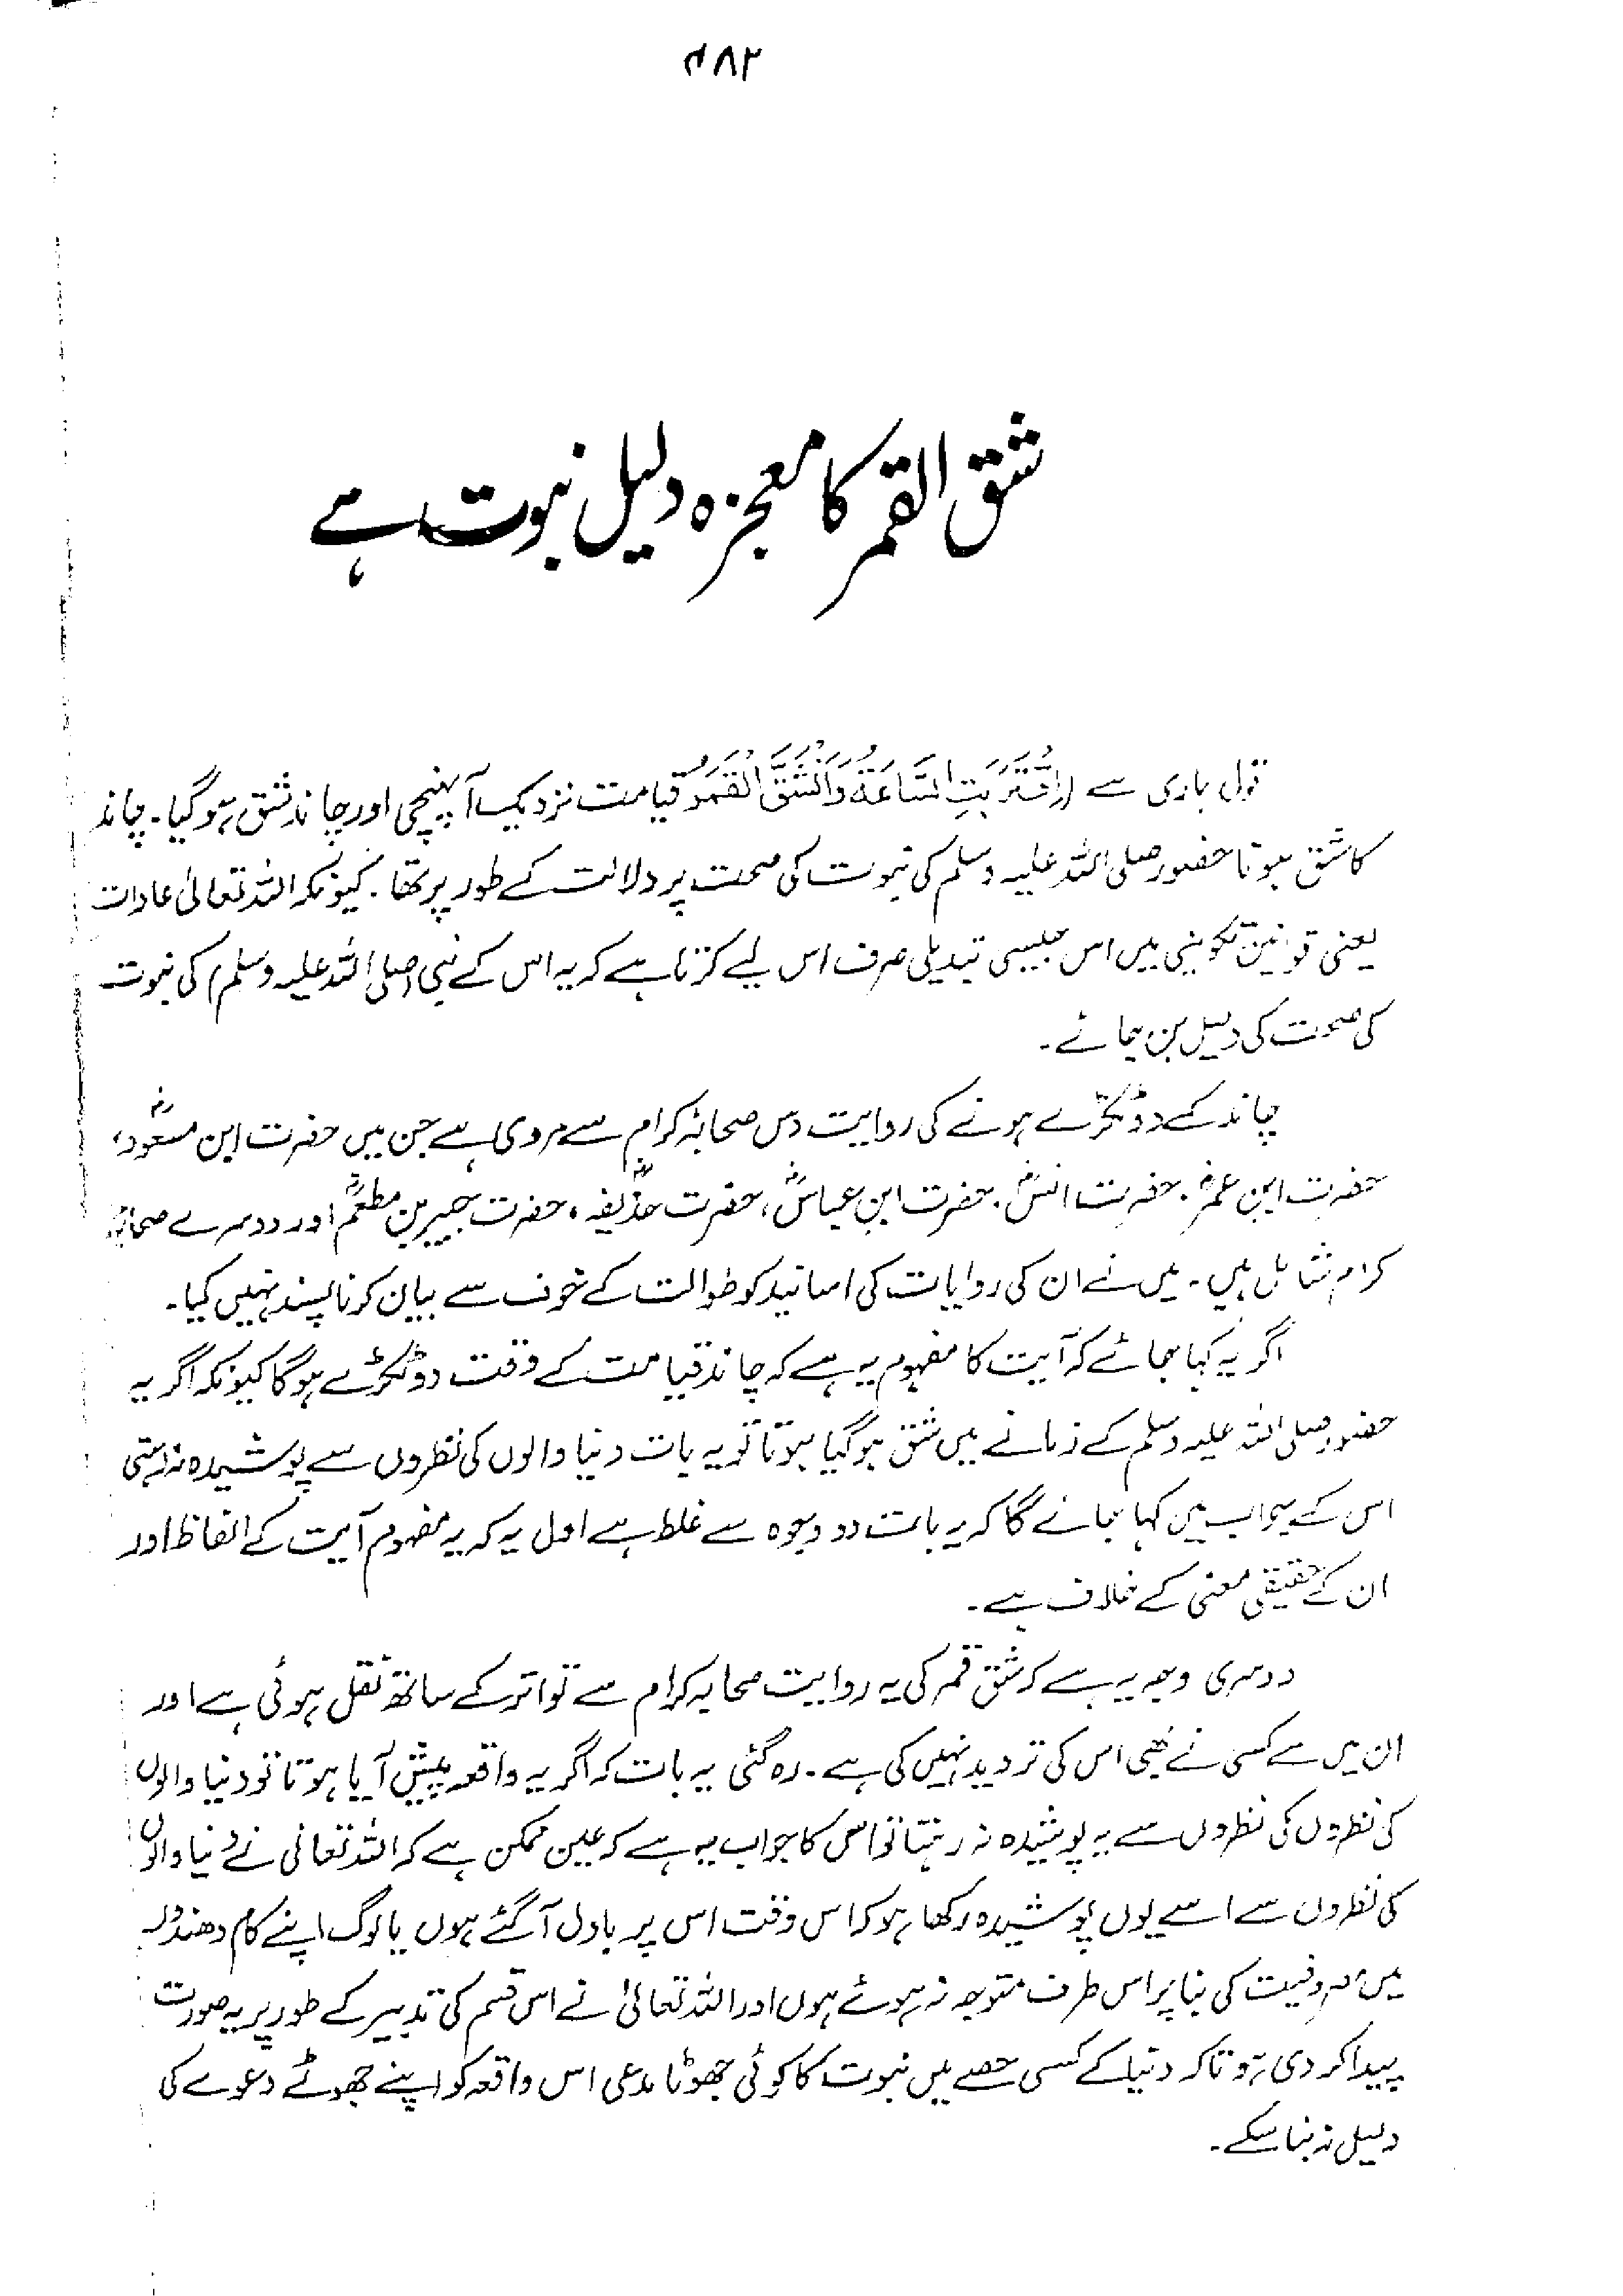 ۴۸۲
شق القمر کا معجزہ دلیل نبوت ہے
قول باری ہے (اِقْتَرَبَتِ السَّاعَةُ وَانْشَقَّ الْقَمَرُ قیامت نزدیک آپہنچی اور چاند شق ہوگیا۔ چاند
کا شق ہونا حضور صلی اللہ علیہ وسلم کی نبوت کی صحت پر دلالت کے طور پر تھا۔ کیونکہ اللہ تعالیٰ عادات
یعنی قوانین تکوینی میں اس جیسی تبدیلی صرف اس لیے کرتا ہے کہ یہ اس کے نبی (صلی اللہ علیہ وسلم) کی نبوت
کی صحت کی دلیل بن جائے۔
چاند کے دو ٹکڑے ہونے کی روایت دس صحابۂ کرام سے مروی ہے جن میں حضرت ابن مسعودؓ،
حضرت ابن عمرؓ، حضرت انسؓ، حضرت ابن عباسؓ، حضرت حذیفہؓ، حضرت جبیر بن مطعمؓ اور دوسرے صحابۂ
کرام شامل ہیں۔ میں نے ان کی روایات کی اسانید کو طوالت کے خوف سے بیان کرنا پسند نہیں کیا۔
اگر یہ کہا جائے کہ آیت کا مفہوم یہ ہے کہ چاند قیامت کے وقت دو ٹکڑے ہوگا کیونکہ اگر یہ
حضور صلی اللہ علیہ وسلم کے زمانے میں شق ہوگیا ہوتا تو یہ بات دنیا والوں کی نظروں سے پوشیدہ نہ رہتی
اس کے جواب میں کہا جائے گا کہ یہ بات دو وجوہ سے غلط ہے اول یہ کہ یہ مفہوم آیت کے الفاظ اور
ان کے حقیقی معنی کے خلاف ہے۔
دوسری وجہ یہ ہے کہ شق قمر کی یہ روایت صحابہ کرام سے تواتر کے ساتھ نقل ہوئی ہے اور
ان میں سے کسی نے بھی اس کی تردید نہیں کی ہے۔ رہ گئی یہ بات کہ اگر یہ واقعہ پیش آیا ہوتا تو دنیا والوں
کی نظروں کی نظروں سے یہ پوشیدہ نہ رہتا تو اس کا جواب یہ ہے کہ عین ممکن ہے کہ اللہ تعالیٰ نے دنیا والوں
کی نظروں سے اسے یوں پوشیدہ رکھا ہو کہ اس وقت اس پر بادل آگئے ہوں یا لوگ اپنے کام دھندوں
میں مصروفیت کی بنا پر اس طرف متوجہ نہ ہوئے ہوں اور اللہ تعالیٰ نے اس قسم کی تدبیر کے طور پر یہ صورت
پیدا کر دی ہو تاکہ دنیا کے کسی حصے میں نبوت کا کوئی جھوٹا مدعی اس واقعہ کو اپنے جھوٹے دعوے کی
دلیل نہ بنا سکے۔